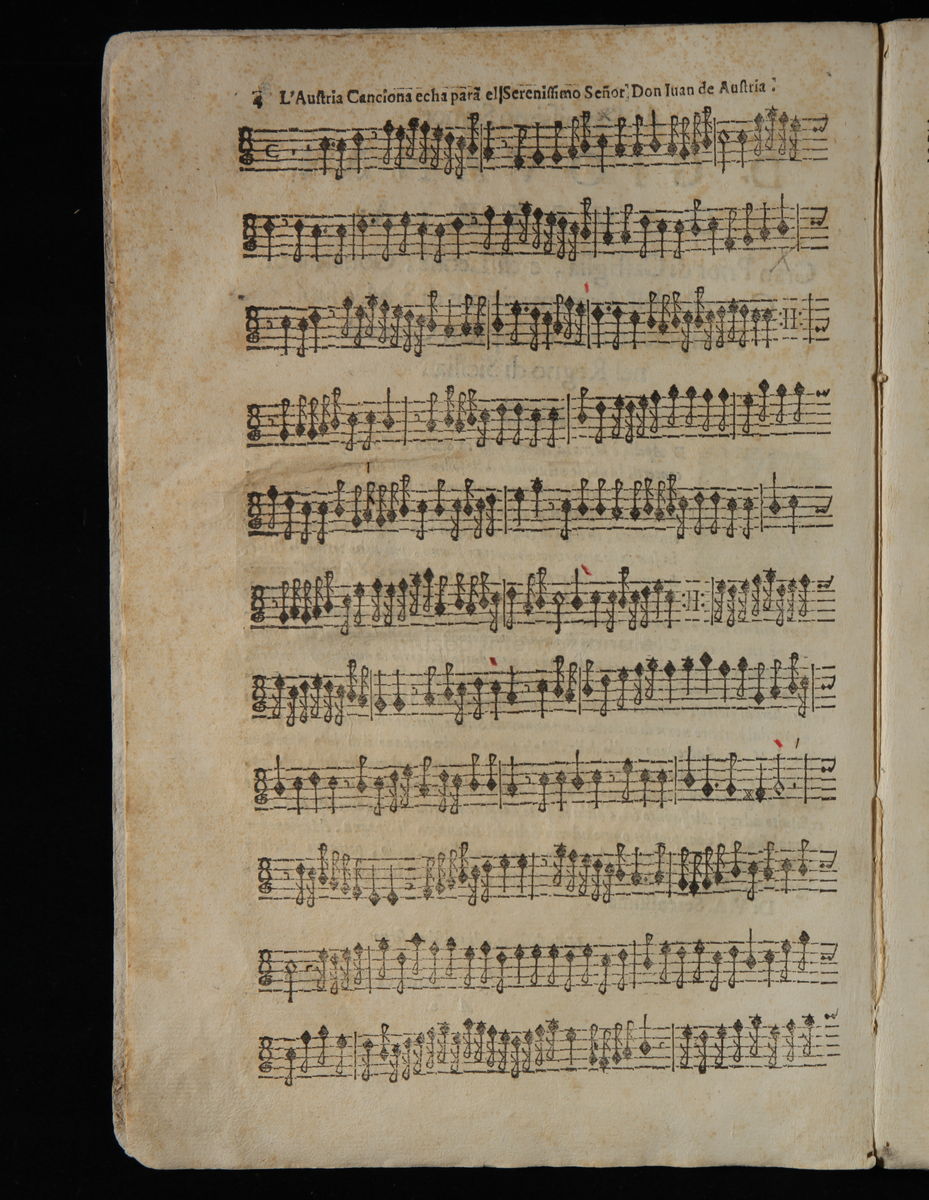 4 L'Auſtria Canciona echa para el Sereniſſimo Señor, Don Iuan de Auſtria.